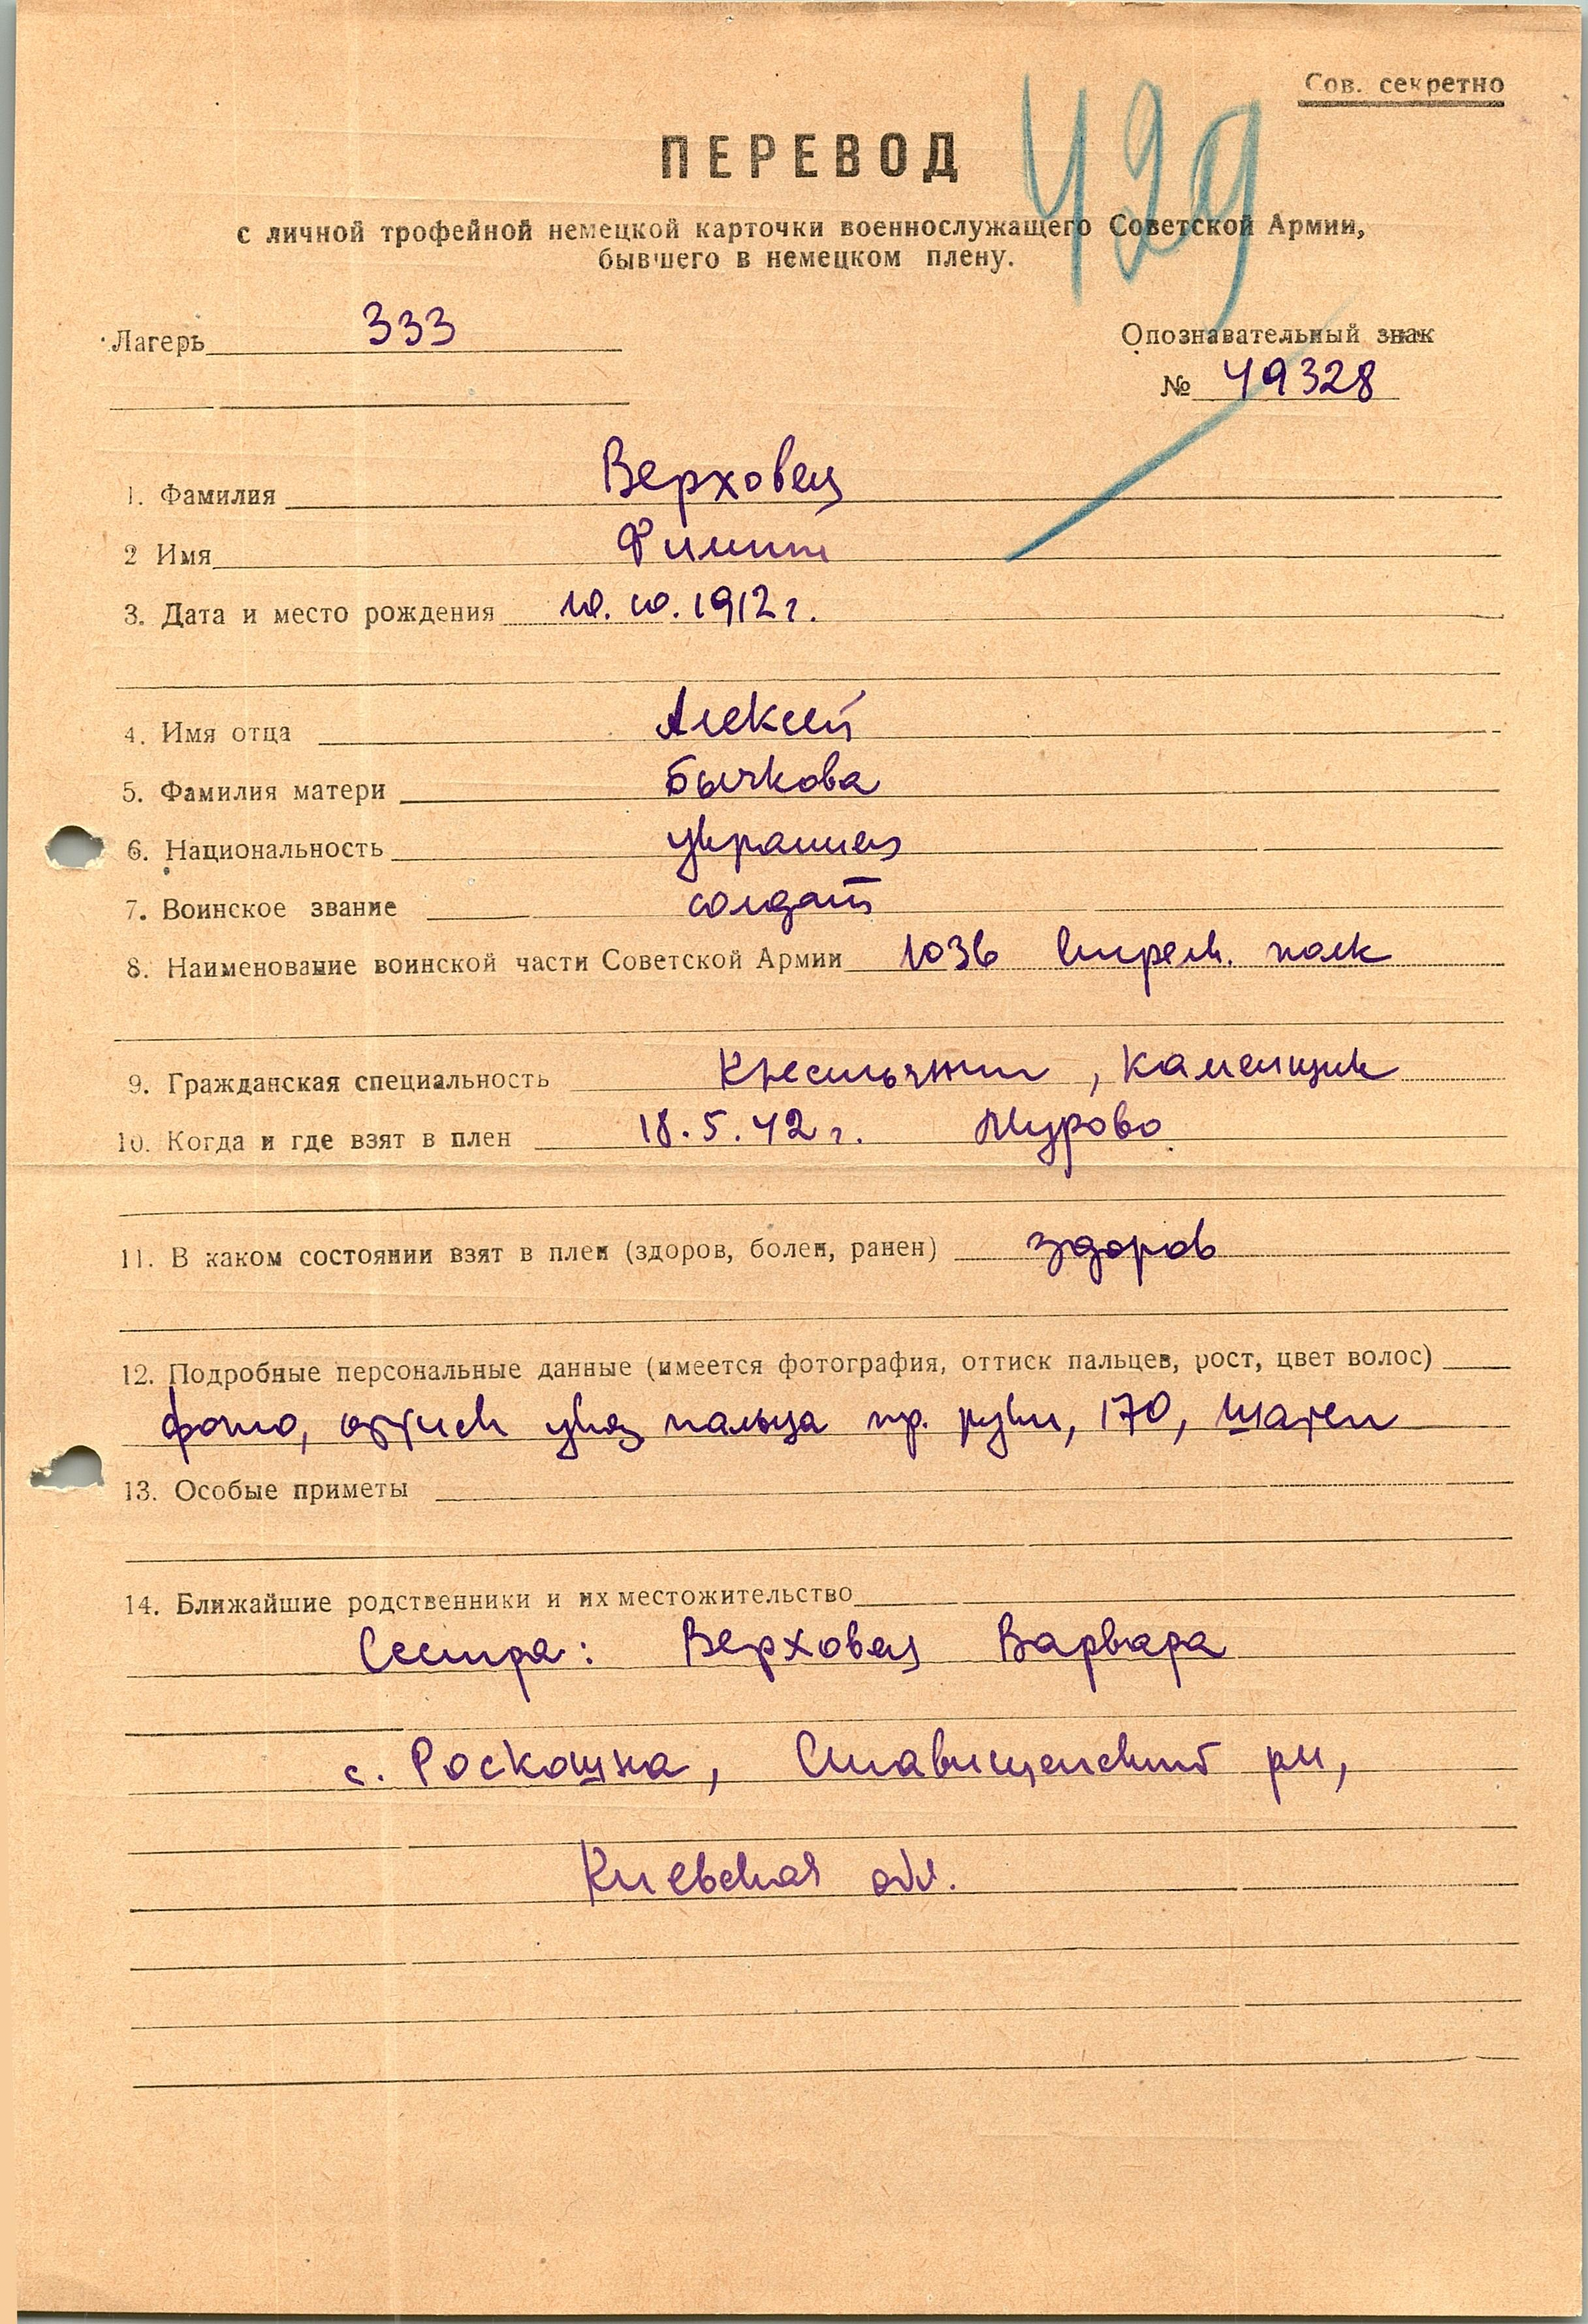 Сов. секретно
429
ПЕРЕВОД
с личной трофейной немецкой карточки военнослужащего Советской Армии,
бывшего в немецком плену.
Лагерь 333
Опознавательный знак
№ 49328
1. Фамилия Верховец
2 Имя Филипп
3. Дата и место рождения 10.10.1912 г.
4. Имя отца Алексей
5. Фамилия матери Бычкова
6. Национальность украинец
7. Воинское звание солдат
8. Наименование воинской части Советской Армии 1036 стрелк. полк
9. Гражданская специальность Крестьянин, каменщик
10. Когда и где взят в плен 18.5.42 г.
11. В каком состоянии взят в плен (здоров, болен, ранен) здоров
12. Подробные персональные данные (имеется фотография, оттиск пальцев, рост, цвет волос)
фото, оттиск указ пальца пр. руки, 170, шатен
13. Особые приметы
14. Ближайшие родственники и их местожительство
Сестра: Верховец Варвара
с. Роскошна, Ставищенский рн,
Киевская обл.